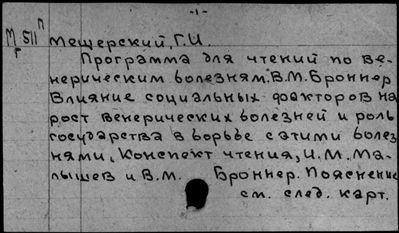 -1-
М 511 п
г
Мещерский, Г.И.
Программа для чтений по ве-
нерическим болезням. В.М. Броннер
Влияние социальных факторов на
рост венерических болезней и роль
государства в борьбе с этими болез
нями, Конспект чтения, И.М. Ма-
лышев и В.М. Броннер. Пояснение
см. след. карт.